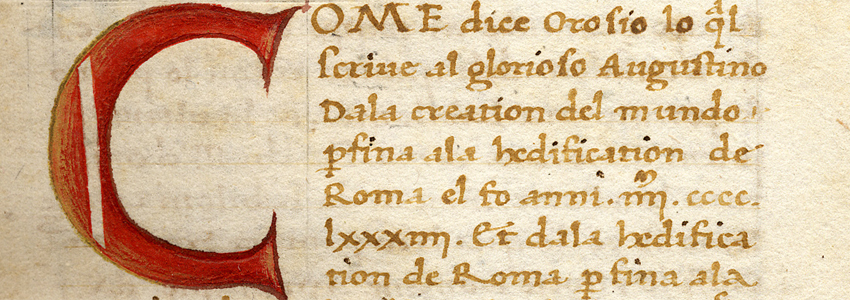 COME dice Orosio lo q̃l
scriue al glorioso Augustino
Dala creation del mundo
ꝑfina ala hedification de
Roma el fo anni. iiii. cccc.
lxxxiiii. Et dala hedifica
tion de Roma ꝑ fina ala